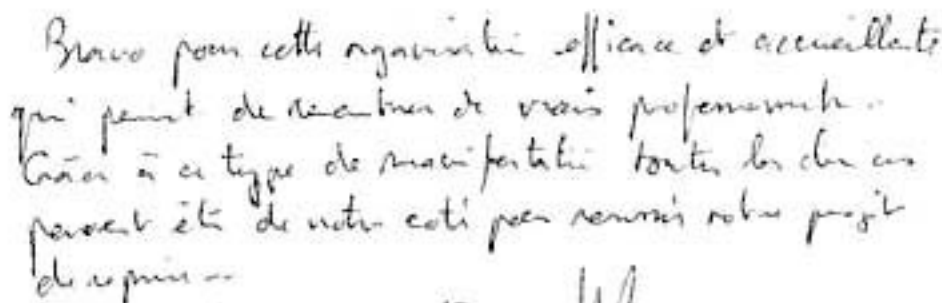 Bravo pour cette organisation efficace et accueillante
qui permet de rencontrer de vrais professionnels.
Grâce à ce type de manifestation toutes les chances
peuvent être de notre coté pour réussir notre projet
de reprise...